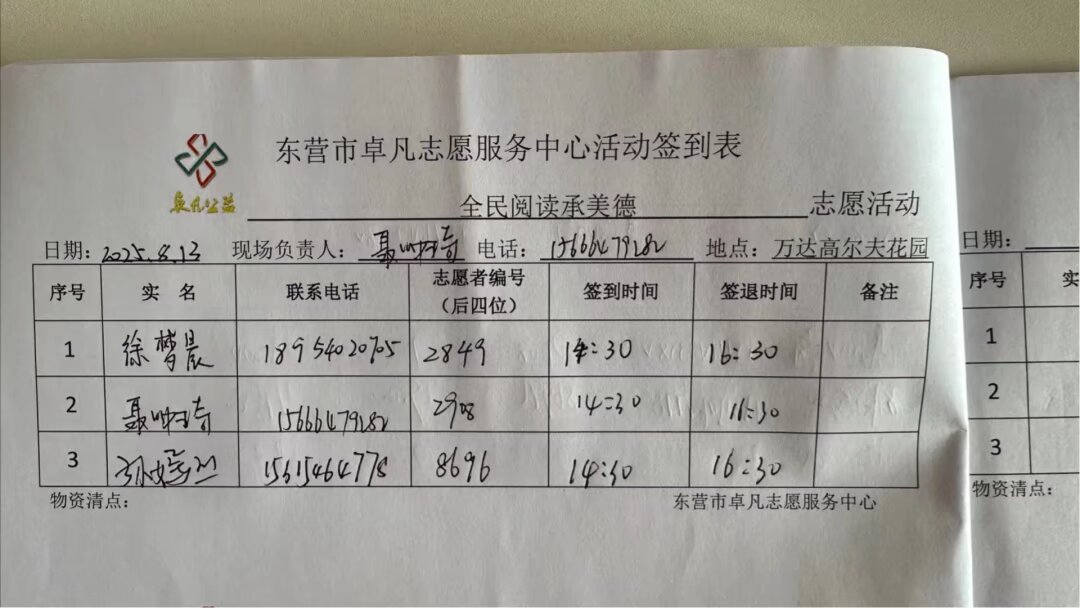 东营市卓凡志愿服务中心活动签到表
卓凡公益
全民阅读承美德 志愿活动
日期：2025.8.13 现场负责人：聂 电话：15666479282 地点：万达高尔夫花园
序号 实 名 联系电话 志愿者编号（后四位） 签到时间 签退时间 备注
1 徐梦晨 18954020705 2849 14:30 16:30
2 聂 15666479282 2908 14:30 16:30
3 孙 15615464778 8696 14:30 16:30
物资清点： 东营市卓凡志愿服务中心
日期：
序号 实
1
2
3
物资清点：